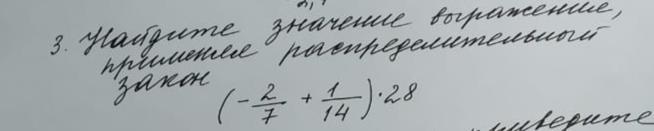 3. Найдите значение выражение,
применяя распределительный
закон
(-2/7 + 1/14) · 28